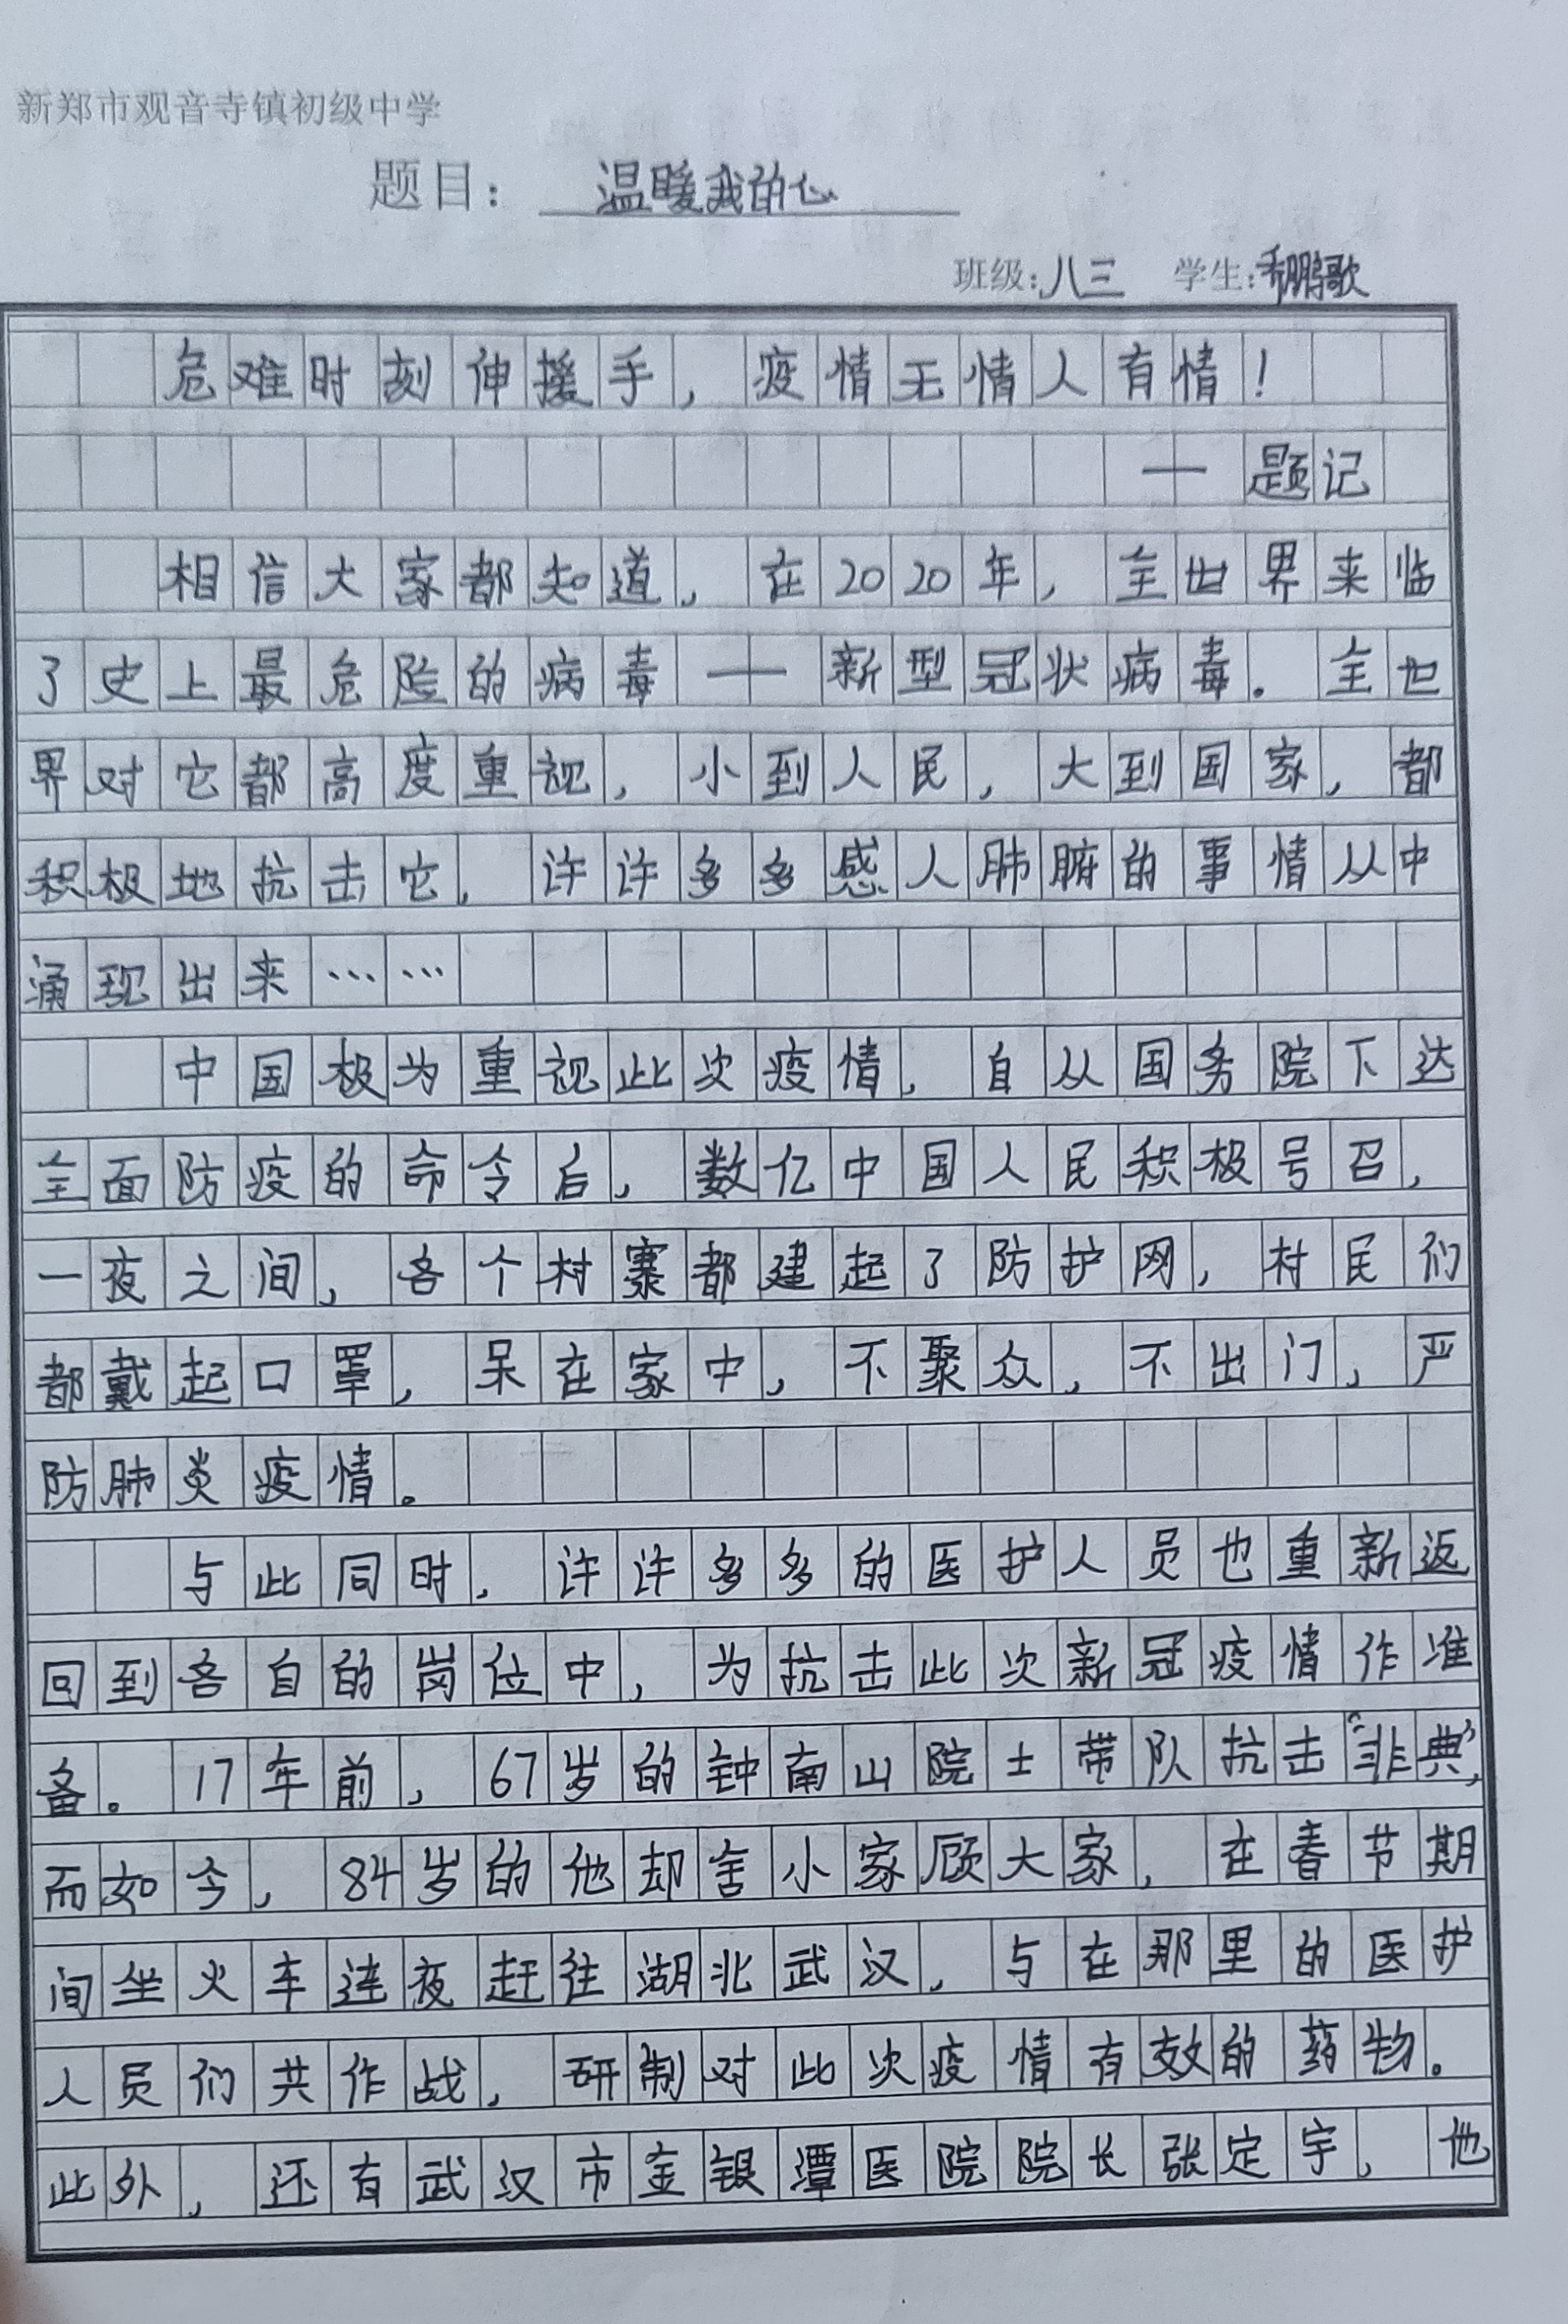 新郑市观音寺镇初级中学
题目：温暖我的心
班级：八三 学生：鹏歌
危难时刻伸援手，疫情无情人有情！
——题记
相信大家都知道，在2020年，全世界来临
了史上最危险的病毒——新型冠状病毒。全世
界对它都高度重视，小到人民，大到国家，都
积极地抗击它，许许多多感人肺腑的事情从中
涌现出来……
中国极为重视此次疫情，自从国务院下达
全面防疫的命令后，数亿中国人民积极号召，
一夜之间，各个村寨都建起了防护网，村民们
都戴起口罩，呆在家中，不聚众，不出门，严
防肺炎疫情。
与此同时，许许多多的医护人员也重新返
回到各自的岗位中，为抗击此次新冠疫情作准
备。17年前，67岁的钟南山院士带队抗击“非典”，
而如今，84岁的他却舍小家顾大家，在春节期
间坐火车连夜赶往湖北武汉，与在那里的医护
人员们共作战，研制对此次疫情有效的药物。
此外，还有武汉市金银潭医院院长张定宇，他